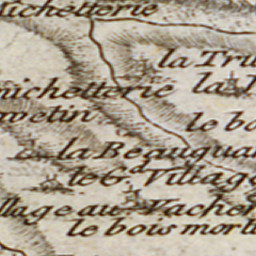 Michetterie
la Tru
la
michetterie
wetin
le bo
la Beauquai
le G.d Villag
llage au Vacher
le bois mort